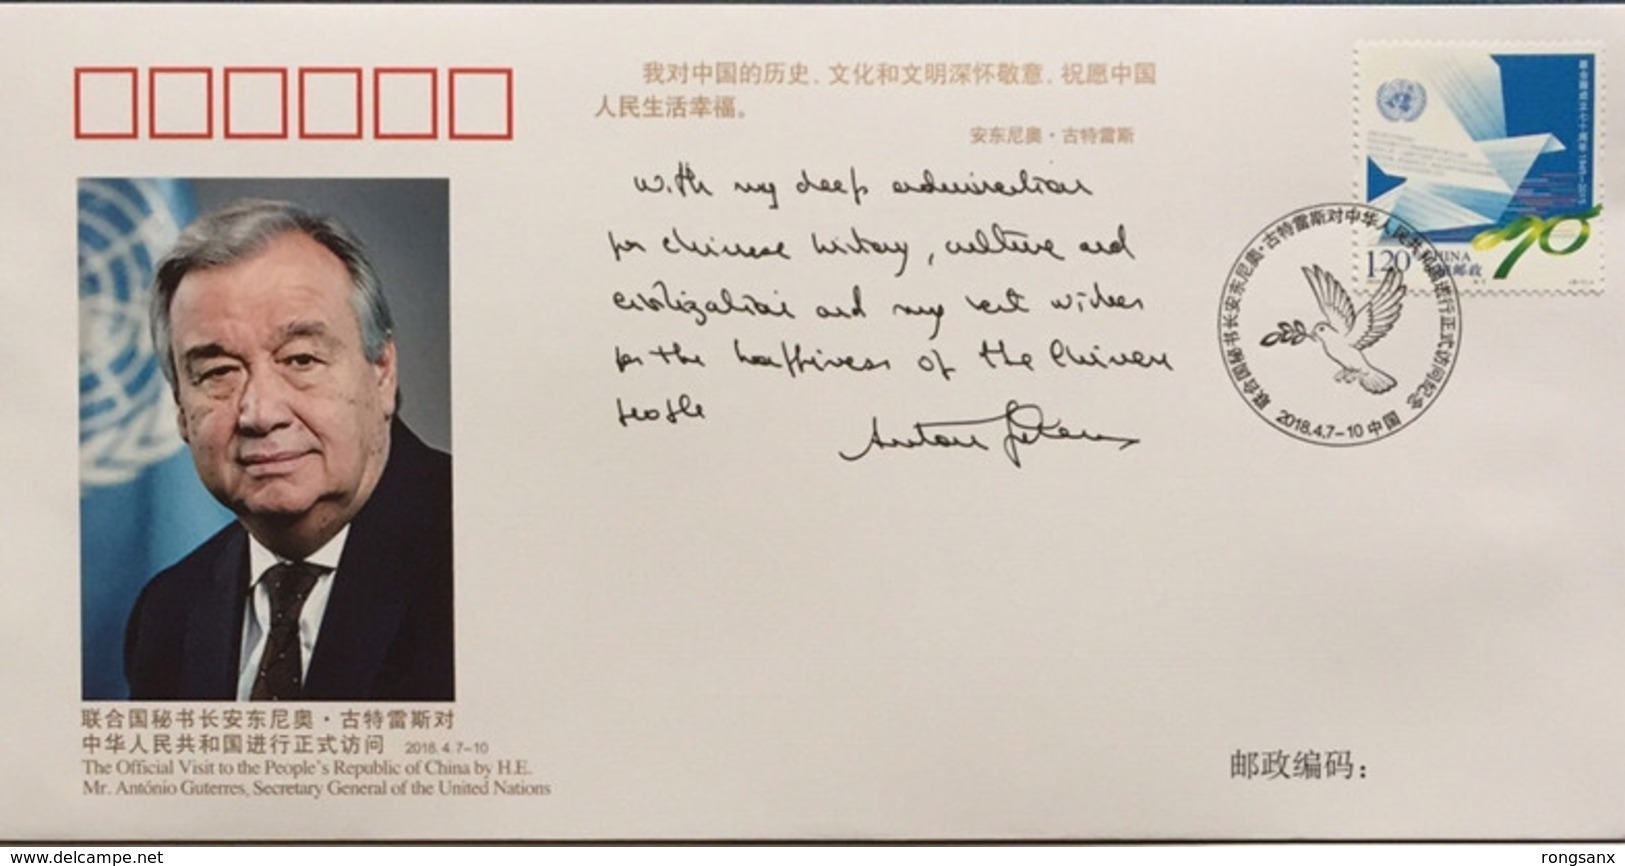 我对中国的历史、文化和文明深怀敬意，祝愿中国
人民生活幸福。
安东尼奥·古特雷斯
with my deep admiration
for chinese history, culture and
civilization and my best wishes
for the happiness of the Chinese
people
联合国成立七十周年 1945-2015
1.20
CHINA
中国邮政
联合国秘书长安东尼奥·古特雷斯对中华人民共和国进行正式访问纪念
2018.4.7-10 中国
联合国秘书长安东尼奥·古特雷斯对
中华人民共和国进行正式访问 2018.4.7-10
The Official Visit to the People's Republic of China by H.E.
Mr. António Guterres, Secretary General of the United Nations
邮政编码：
www.delcampe.net
rongsanx